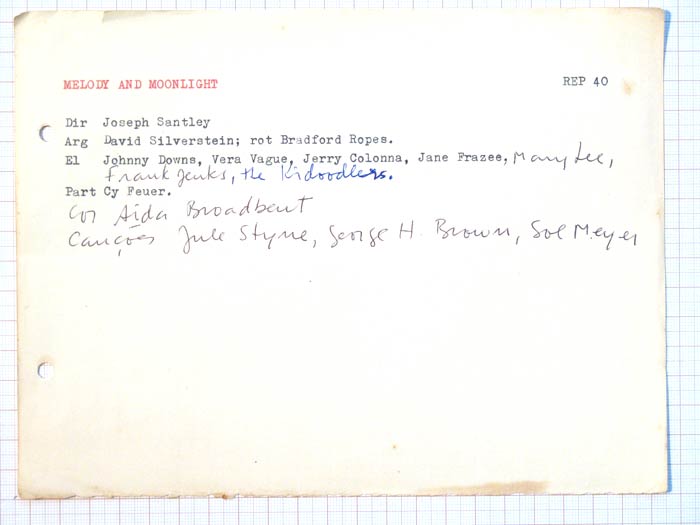 MELODY AND MOONLIGHT REP 40
Dir Joseph Santley
Arg David Silverstein; rot Bradford Ropes.
El Johnny Downs, Vera Vague, Jerry Colonna, Jane Frazee, Mary Lee,
Frank Jenks, the Kidoodlers.
Part Cy Feuer.
Cor Aida Broadbent
Canções Jule Styne, George H. Brown, Sol Meyer